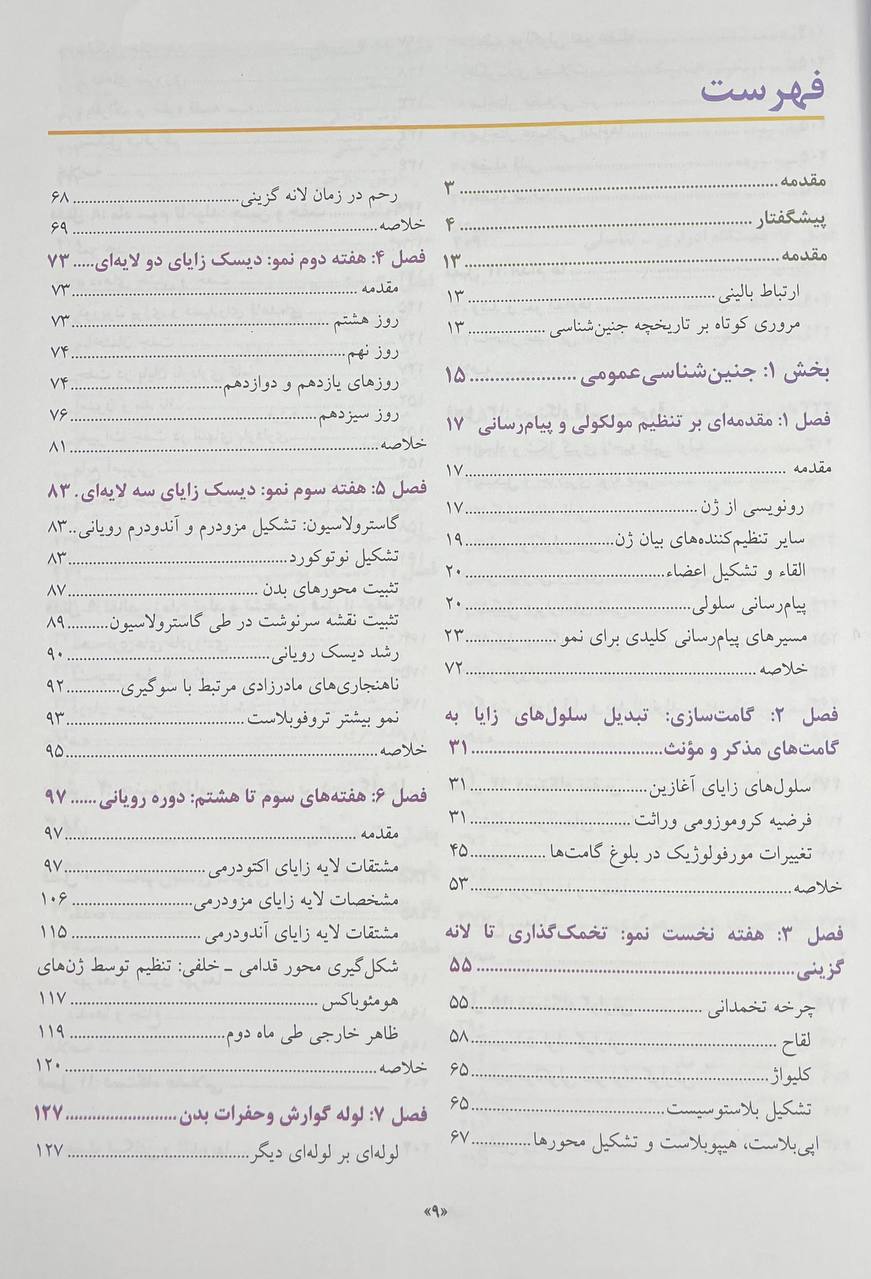 فهرست
مقدمه ۳
پیشگفتار ۴
مقدمه ۱۳
ارتباط بالینی ۱۳
مروری کوتاه بر تاریخچه جنین‌شناسی ۱۳
بخش ۱: جنین‌شناسی عمومی ۱۵
فصل ۱: مقدمه‌ای بر تنظیم مولکولی و پیام‌رسانی ۱۷
مقدمه ۱۷
رونویسی از ژن ۱۷
سایر تنظیم‌کننده‌های بیان ژن ۱۹
القاء و تشکیل اعضاء ۲۰
پیام‌رسانی سلولی ۲۰
مسیرهای پیام‌رسانی کلیدی برای نمو ۲۳
خلاصه ۷۲
فصل ۲: گامت‌سازی: تبدیل سلول‌های زایا به
گامت‌های مذکر و مؤنث ۳۱
سلول‌های زایای آغازین ۳۱
فرضیه کروموزومی وراثت ۳۱
تغییرات مورفولوژیک در بلوغ گامت‌ها ۴۵
خلاصه ۵۳
فصل ۳: هفته نخست نمو: تخمک‌گذاری تا لانه
گزینی ۵۵
چرخه تخمدانی ۵۵
لقاح ۵۸
کلیواژ ۶۵
تشکیل بلاستوسیست ۶۵
اپی‌بلاست، هیپوبلاست و تشکیل محورها ۶۷
رحم در زمان لانه گزینی ۶۸
خلاصه ۶۹
فصل ۴: هفته دوم نمو: دیسک زایای دو لایه‌ای ۷۳
مقدمه ۷۳
روز هشتم ۷۳
روز نهم ۷۴
روزهای یازدهم و دوازدهم ۷۴
روز سیزدهم ۷۶
خلاصه ۸۱
فصل ۵: هفته سوم نمو: دیسک زایای سه لایه‌ای ۸۳
گاسترولاسیون: تشکیل مزودرم و آندودرم رویانی ۸۳
تشکیل نوتوکورد ۸۳
تثبیت محورهای بدن ۸۷
تثبیت نقشه سرنوشت در طی گاسترولاسیون ۸۹
رشد دیسک رویانی ۹۰
ناهنجاری‌های مادرزادی مرتبط با سوگیری ۹۲
نمو بیشتر تروفوبلاست ۹۳
خلاصه ۹۵
فصل ۶: هفته‌های سوم تا هشتم: دوره رویانی ۹۷
مقدمه ۹۷
مشتقات لایه زایای اکتودرمی ۹۷
مشخصات لایه زایای مزودرمی ۱۰۶
مشتقات لایه زایای آندودرمی ۱۱۵
شکل‌گیری محور قدامی ـ خلفی: تنظیم توسط ژن‌های
هومئوباکس ۱۱۷
ظاهر خارجی طی ماه دوم ۱۱۹
خلاصه ۱۲۰
فصل ۷: لوله گوارش وحفرات بدن ۱۲۷
لوله‌ای بر لوله‌ای دیگر ۱۲۷
«۹»